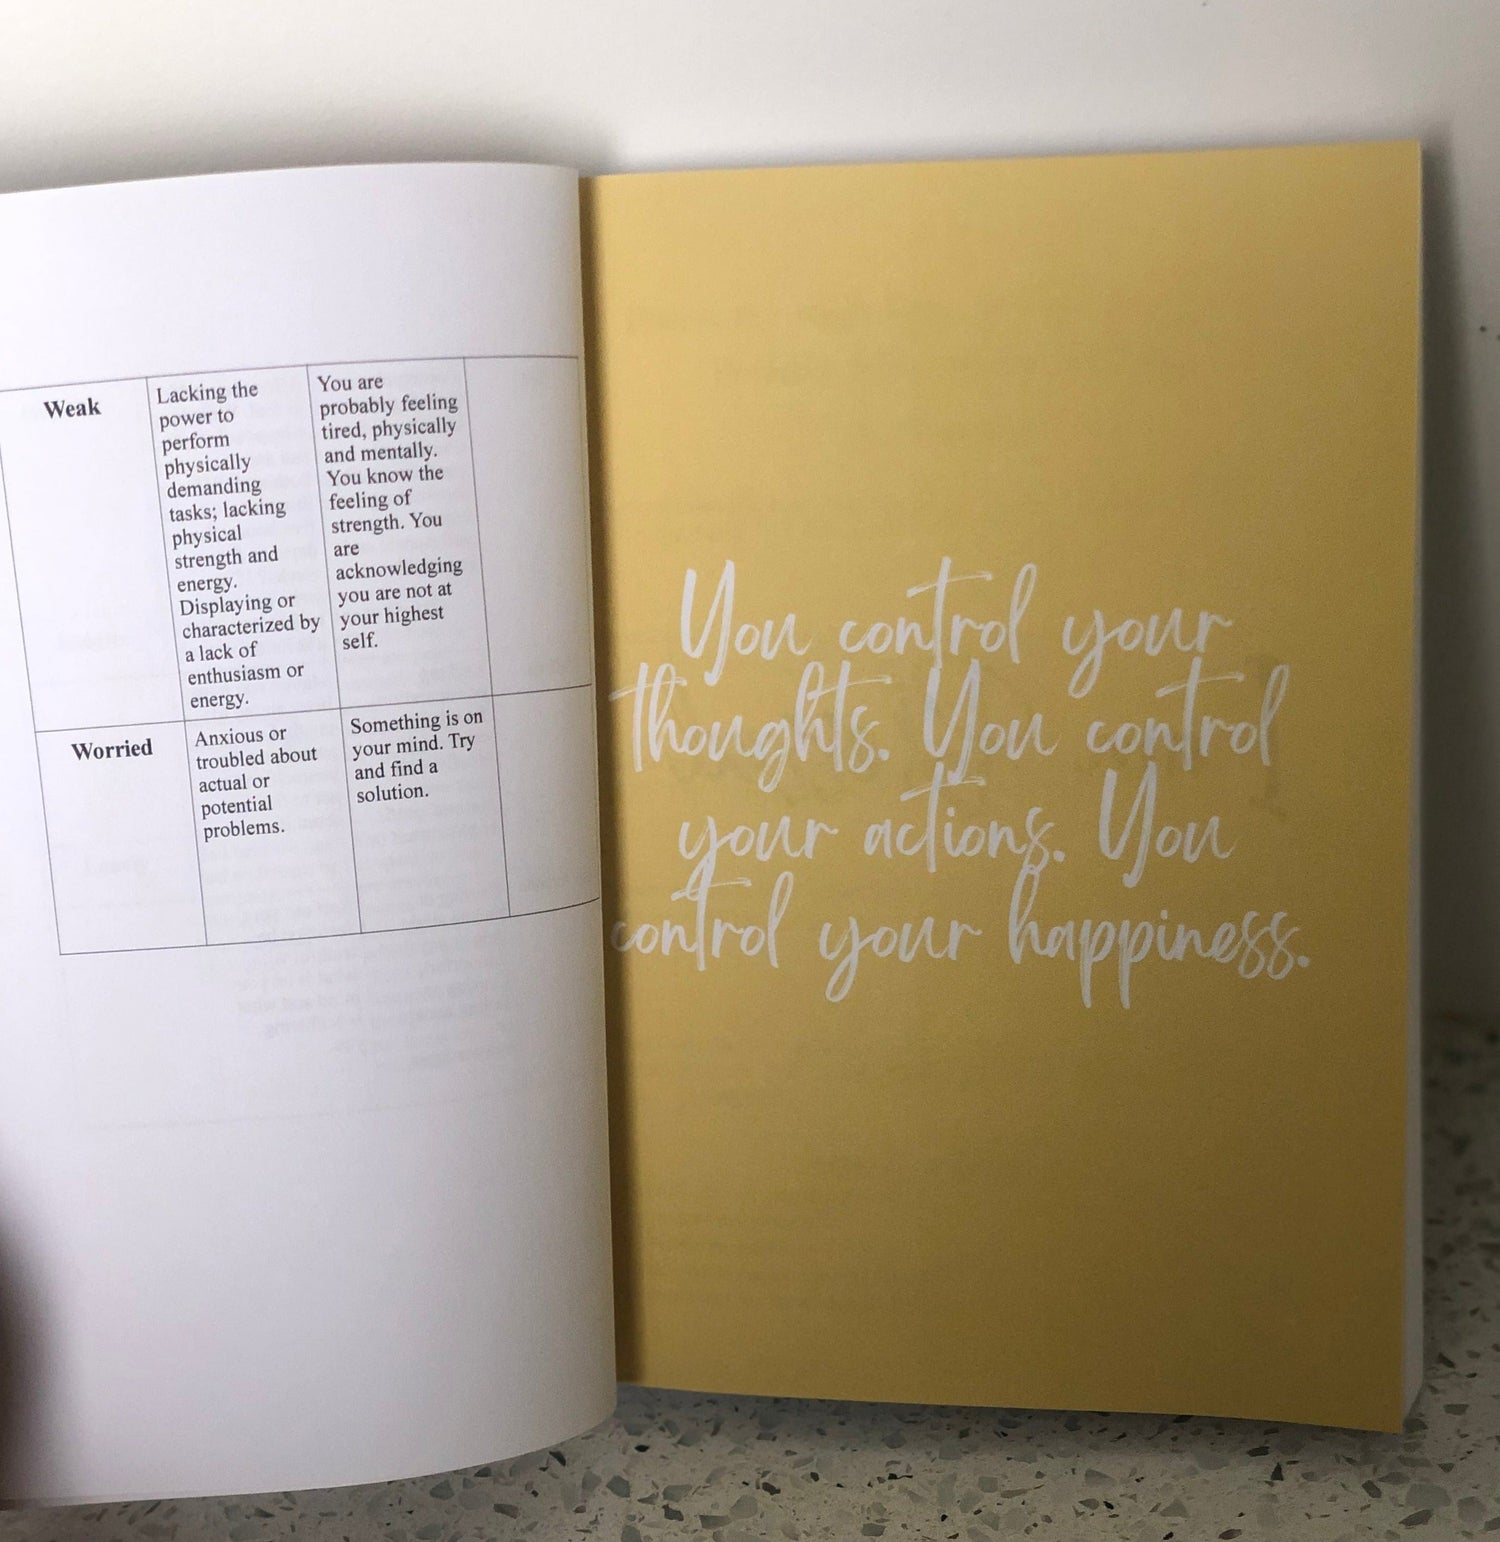 Weak
Lacking the
power to
perform
physically
demanding
tasks; lacking
physical
strength and
energy.
Displaying or
characterized by
a lack of
enthusiasm or
energy.
You are
probably feeling
tired, physically
and mentally.
You know the
feeling of
strength. You
are
acknowledging
you are not at
your highest
self.
Worried
Anxious or
troubled about
actual or
potential
problems.
Something is on
your mind. Try
and find a
solution.
You control your
thoughts. You control
your actions. You
control your happiness.